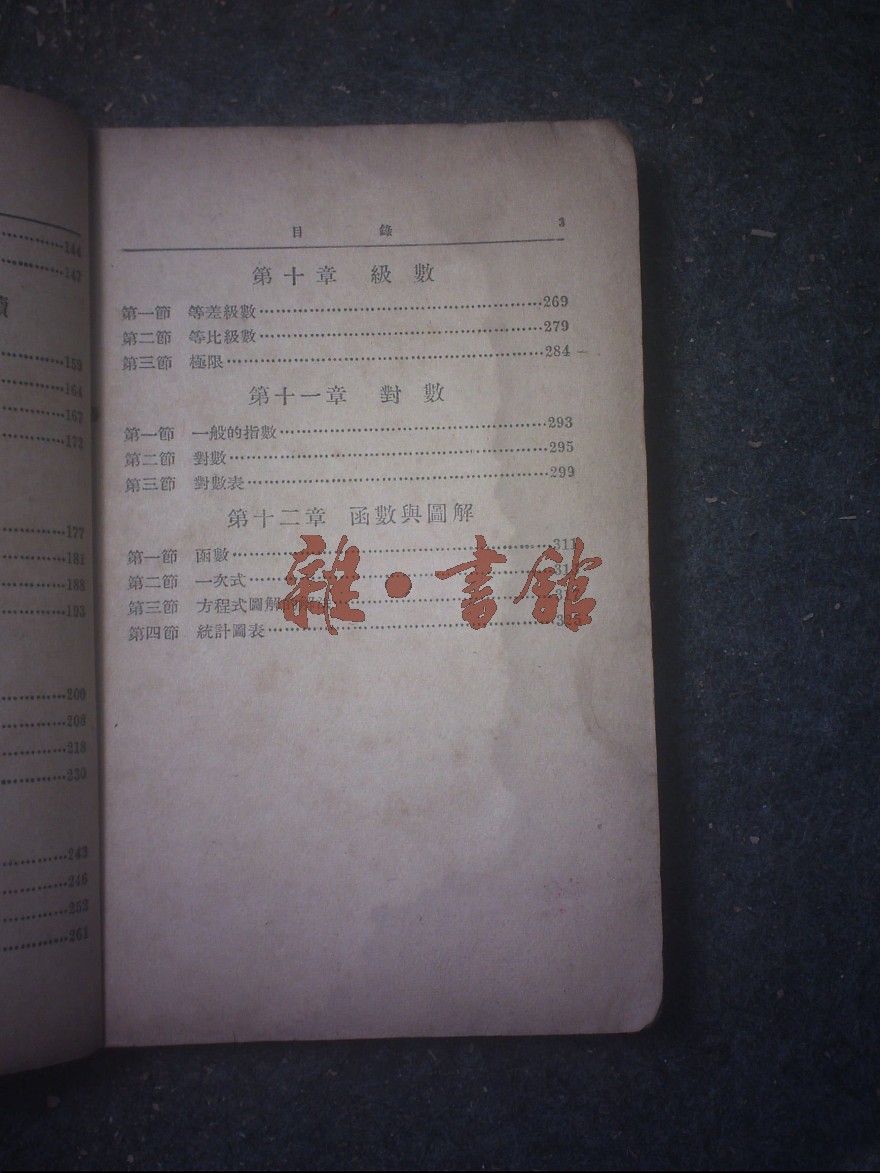 144
147
159
164
167
172
177
181
188
193
200
208
218
230
243
246
253
261
目 錄 3
第十章 級數
第一節 等差級數 269
第二節 等比級數 279
第三節 極限 284
第十一章 對數
第一節 一般的指數 293
第二節 對數 295
第三節 對數表 299
第十二章 函數與圖解
第一節 函數 311
第二節 一次式
第三節 方程式圖解的解法
第四節 統計圖表
雜·書館